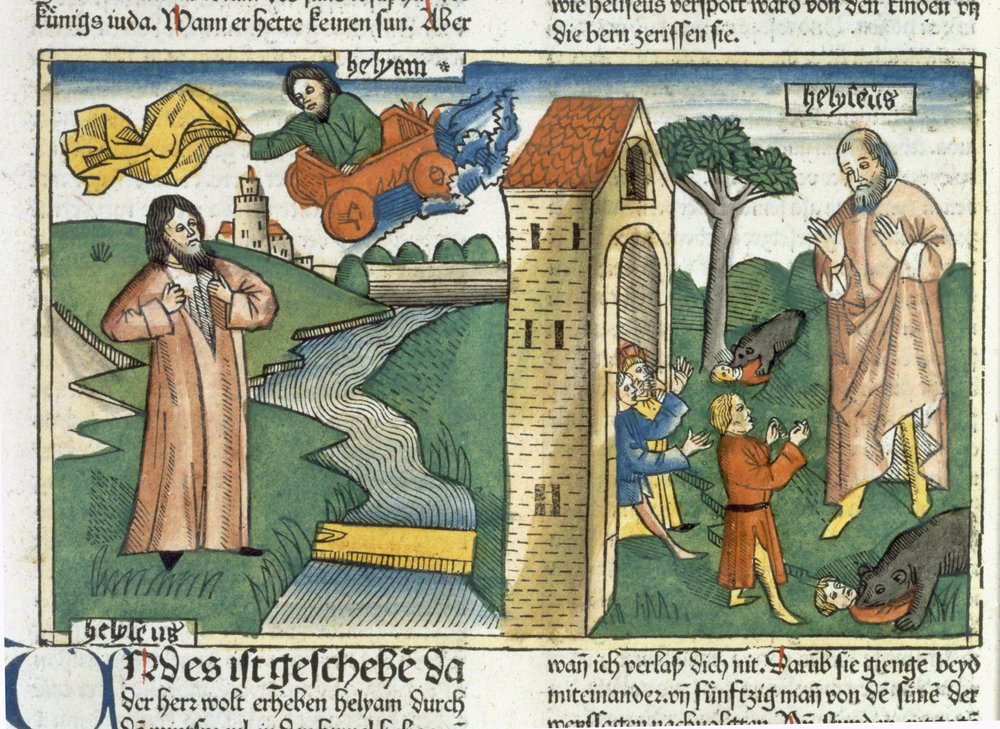 künigs iuda. Wann er hette keinen sun. Aber
wie heliseus verspott ward von den kinden vñ
die bern zerissen sie.
helyam
helyseus
helyseus
des ist geschehẽ da
der herr wolt erheben helyam durch
wañ ich verlaß dich nit. Darũb sie giengẽ beyd
miteinander. vñ fünftzig mañ von dẽ sünẽ der